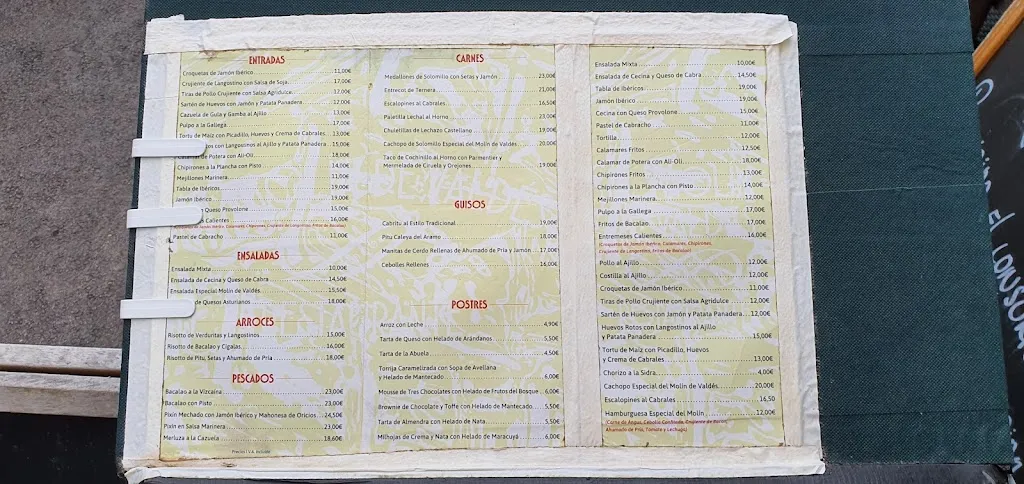 ENTRADAS
Croquetas de Jamón Ibérico 11,00€
Crujiente de Langostino con Salsa de Soja 17,00€
Tiras de Pollo Crujiente con Salsa Agridulce 12,00€
Sartén de Huevos con Jamón y Patata Panadera 12,00€
Cazuela de Gula y Gamba al Ajillo 13,00€
Pulpo a la Gallega 17,00€
Tortu de Maíz con Picadillo, Huevos y Crema de Cabrales 13,00€
Rotos con Langostinos al Ajillo y Patata Panadera 15,00€
Calamar de Potera con Ali-Oli 18,00€
Chipirones a la Plancha con Pisto 14,00€
Mejillones Marinera 11,00€
Tabla de Ibéricos 19,00€
Jamón Ibérico 19,00€
con Queso Provolone 15,00€
Calientes 16,00€
Pastel de Cabracho 11,00€
ENSALADAS
Ensalada Mixta 10,00€
Ensalada de Cecina y Queso de Cabra 14,50€
Ensalada Especial Molín de Valdés 15,50€
de Quesos Asturianos 18,00€
ARROCES
Risotto de Verduritas y Langostinos 15,00€
Risotto de Bacalao y Cigalas 16,00€
Risotto de Pitu, Setas y Ahumado de Pría 18,00€
PESCADOS
Bacalao a la Vizcaína 23,00€
Bacalao con Pisto 23,00€
Pixín Mechado con Jamón Ibérico y Mahonesa de Oricios 24,50€
Pixín en Salsa Marinera 23,00€
Merluza a la Cazuela 18,60€
Precios I.V.A. incluido
CARNES
Medallones de Solomillo con Setas y Jamón 23,00€
Entrecot de Ternera 21,00€
Escalopines al Cabrales 16,50€
Paletilla Lechal al Horno 23,00€
Chuletillas de Lechazo Castellano 19,00€
Cachopo de Solomillo Especial del Molín de Valdés 20,00€
Taco de Cochinillo al Horno con Parmentier y
Mermelada de Ciruela y Orejones 19,00€
GUISOS
Cabritu al Estilo Tradicional 19,00€
Pitu Caleya del Aramo 18,00€
Manitas de Cerdo Rellenas de Ahumado de Pría y Jamón 17,00€
Cebolles Rellenes 16,00€
POSTRES
Arroz con Leche 4,90€
Tarta de Queso con Helado de Arándanos 5,50€
Tarta de la Abuela 4,50€
Torrija Caramelizada con Sopa de Avellana
y Helado de Mantecado 6,00€
Mousse de Tres Chocolates con Helado de Frutos del Bosque 6,00€
Brownie de Chocolate y Toffe con Helado de Mantecado 5,50€
Tarta de Almendra con Helado de Nata 5,50€
Milhojas de Crema y Nata con Helado de Maracuyá 6,00€
Ensalada Mixta 10,00€
Ensalada de Cecina y Queso de Cabra 14,50€
Tabla de Ibéricos 19,00€
Jamón Ibérico 19,00€
Cecina con Queso Provolone 15,00€
Pastel de Cabracho 11,00€
Tortilla 12,00€
Calamares Fritos 12,50€
Calamar de Potera con Ali-Oli 18,00€
Chipirones Fritos 13,00€
Chipirones a la Plancha con Pisto 14,00€
Mejillones Marinera 12,00€
Pulpo a la Gallega 17,00€
Fritos de Bacalao 17,00€
Entremeses Calientes 16,00€
(Croquetas de Jamón Ibérico, Calamares, Chipirones,
Crujiente de Langostino, Fritos de Bacalao)
Pollo al Ajillo 12,00€
Costilla al Ajillo 12,00€
Croquetas de Jamón Ibérico 11,00€
Tiras de Pollo Crujiente con Salsa Agridulce 12,00€
Sartén de Huevos con Jamón y Patata Panadera 12,00€
Huevos Rotos con Langostinos al Ajillo
y Patata Panadera 15,00€
Tortu de Maíz con Picadillo, Huevos
y Crema de Cabrales 13,00€
Chorizo a la Sidra 4,00€
Cachopo Especial del Molín de Valdés 20,00€
Escalopines al Cabrales 16,50
Hamburguesa Especial del Molín 12,00€
(Carne de Angus, Cebolla Confitada, Crujiente de Bacon,
Ahumado de Pría, Tomate y Lechuga)